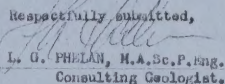 Respectfully submitted,
L. G. PHELAN, M.A.Sc.P.Eng.
Consulting Geologist.